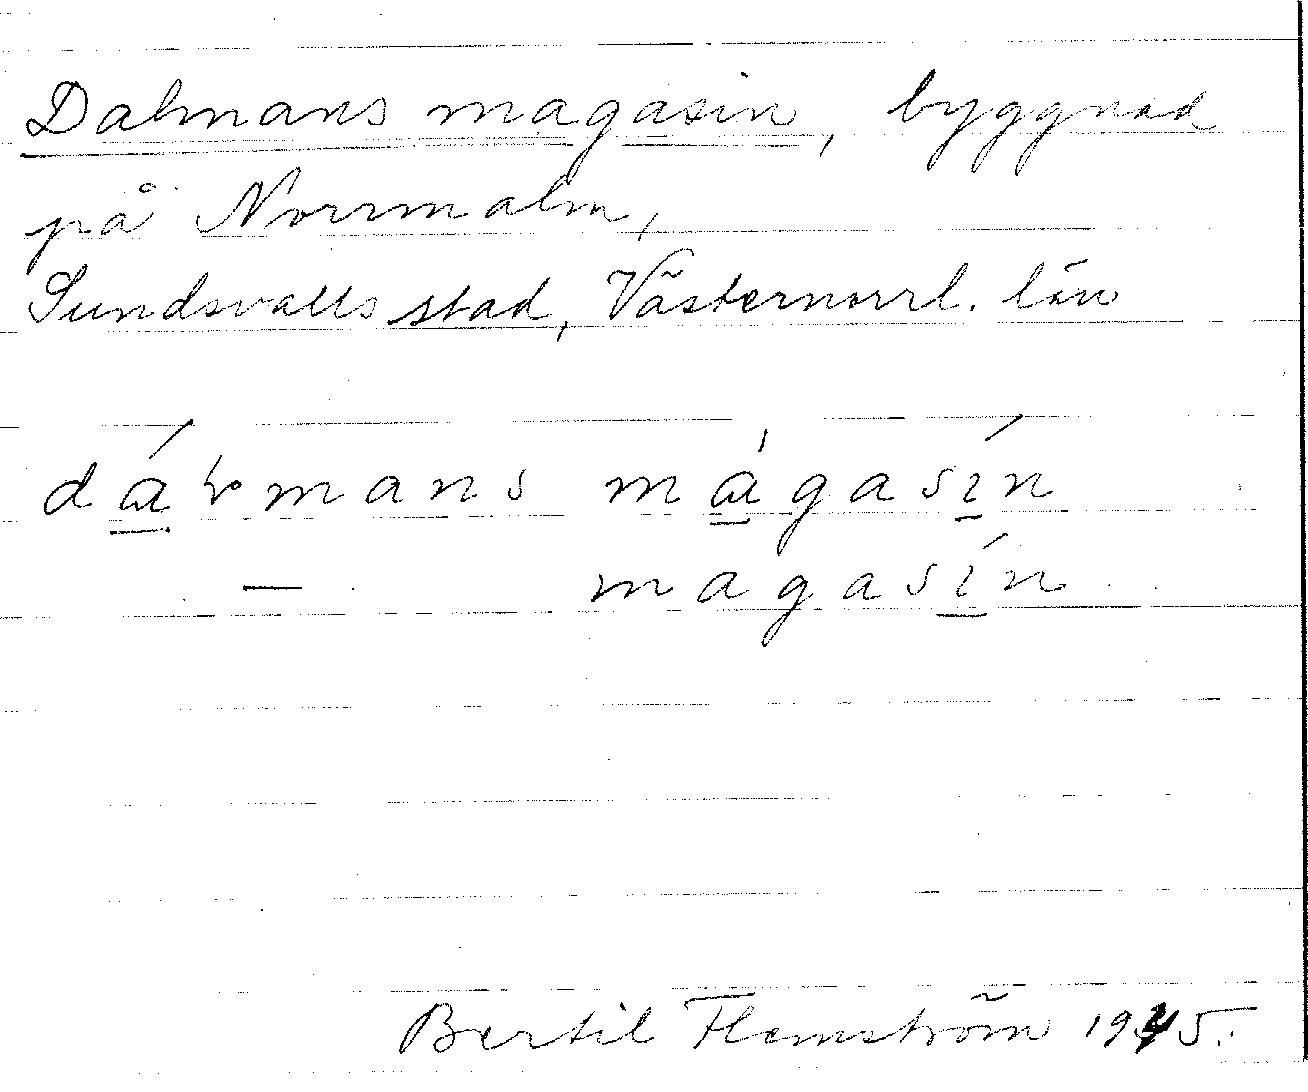 Dalmans magasin, byggnad
på Norrmalm,
Sundsvalls stad, Västernorrl. län
mágasín
— magasín
Bertil Flemström 1945.